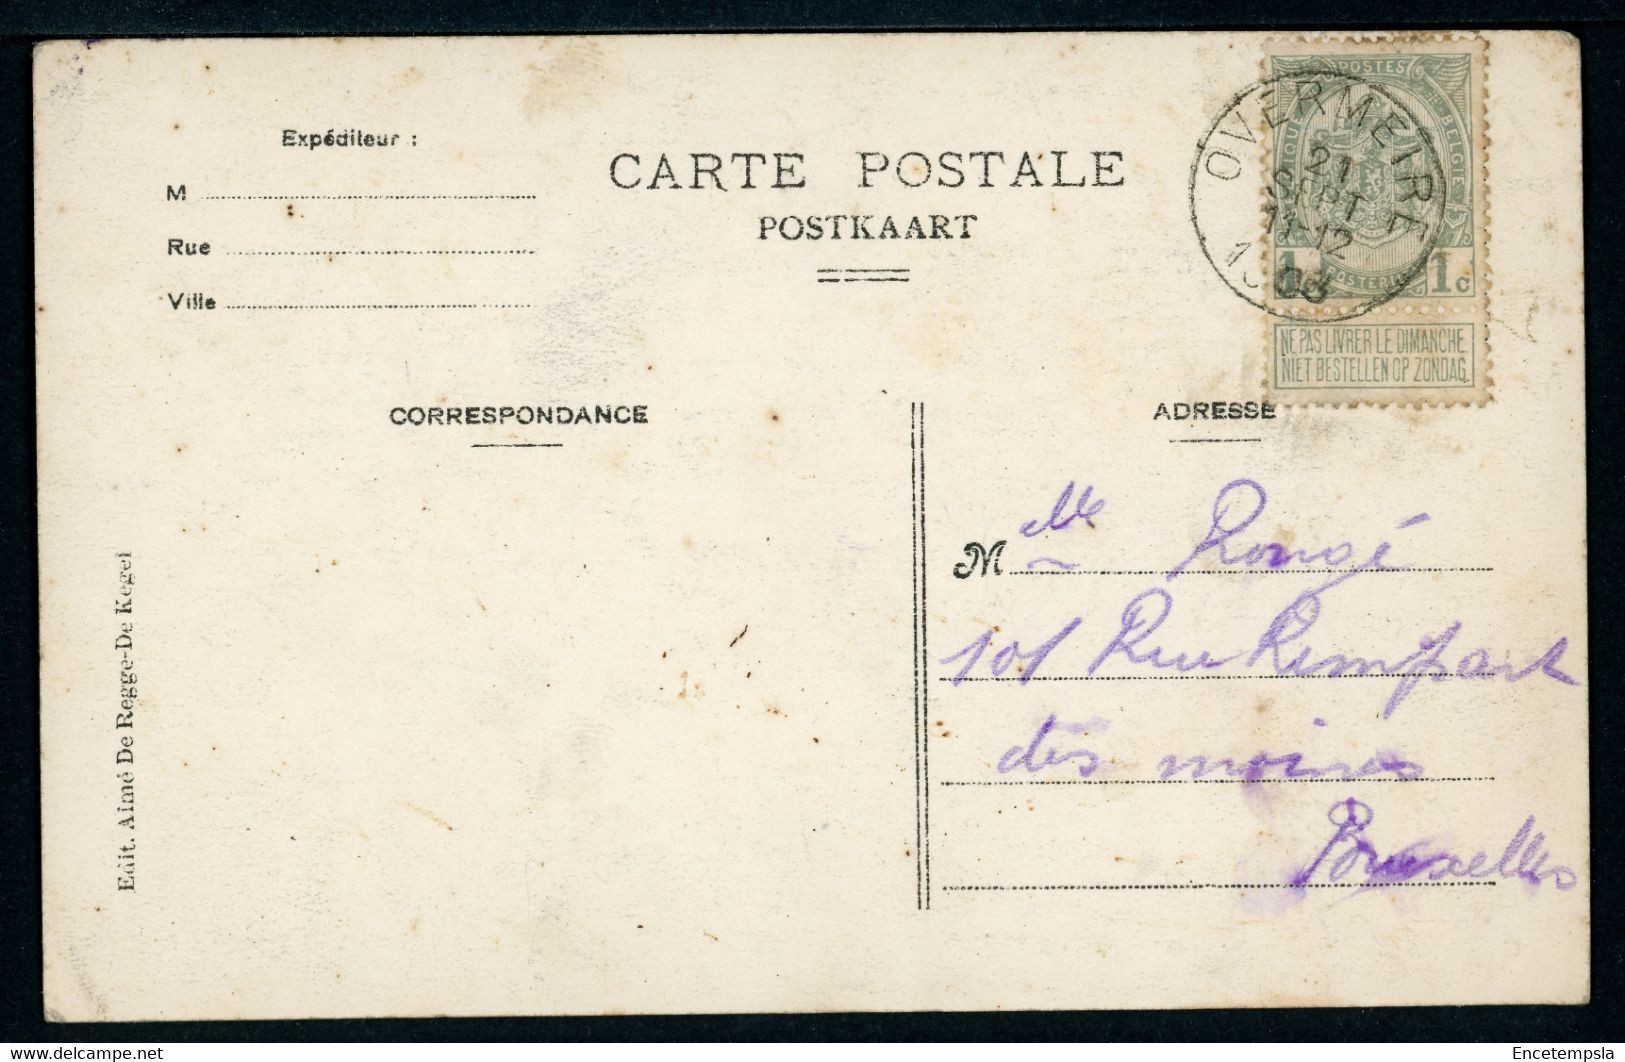 Expéditeur :
M
Rue
Ville
CARTE POSTALE
POSTKAART
POSTES
BELGIQUE
BELGIE
POSTERIJEN
1c
OVERMEIRE
21
SEPT
11-12
1908
NE PAS LIVRER LE DIMANCHE
NIET BESTELLEN OP ZONDAG
CORRESPONDANCE
ADRESSE
Melle Rongé
101 Rue Rempart
des moines
Bruxelles
Edit. Aimé De Regge-De Kegel
www.delcampe.net
Encetempsla